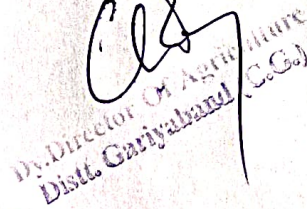 Dy. Director Of Agriculture
Distt. Gariyaband (C.G.)